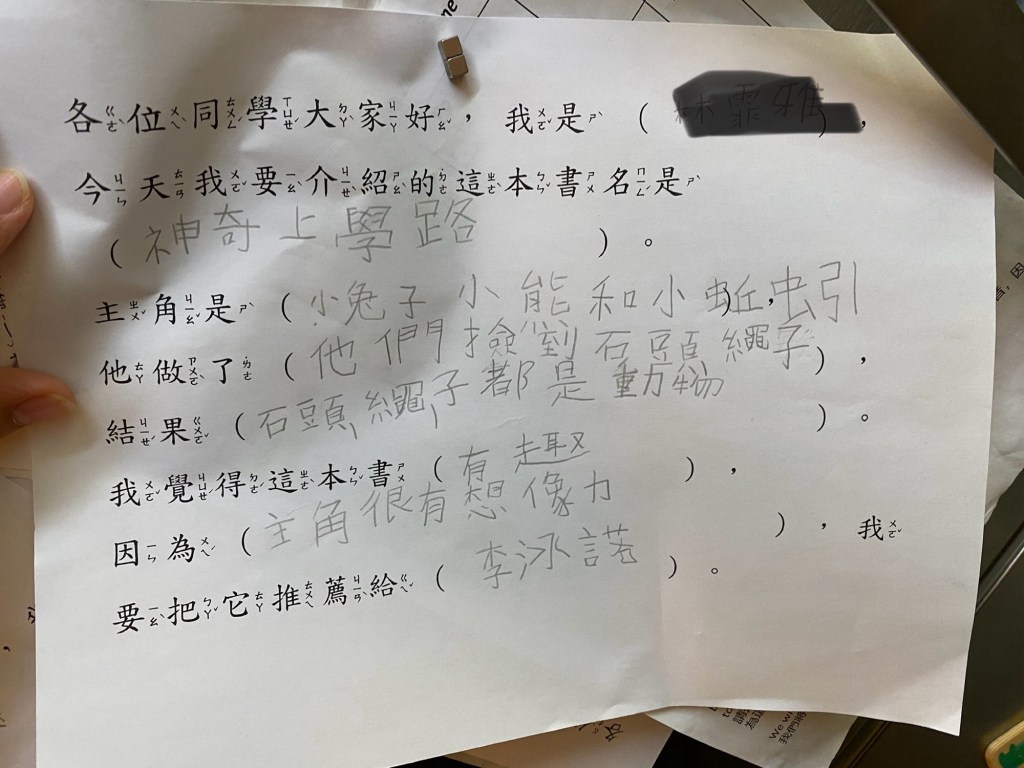 各位同學大家好，我是（　），
今天我要介紹的這本書名是
（神奇上學路）。
主角是（小兔子小能和小蚯蚓），
他做了（他們撿到石頭繩子），
結果（石頭、繩子都是動物）。
我覺得這本書（有趣），
因為（主角很有想像力），我
要把它推薦給（李泳諾）。